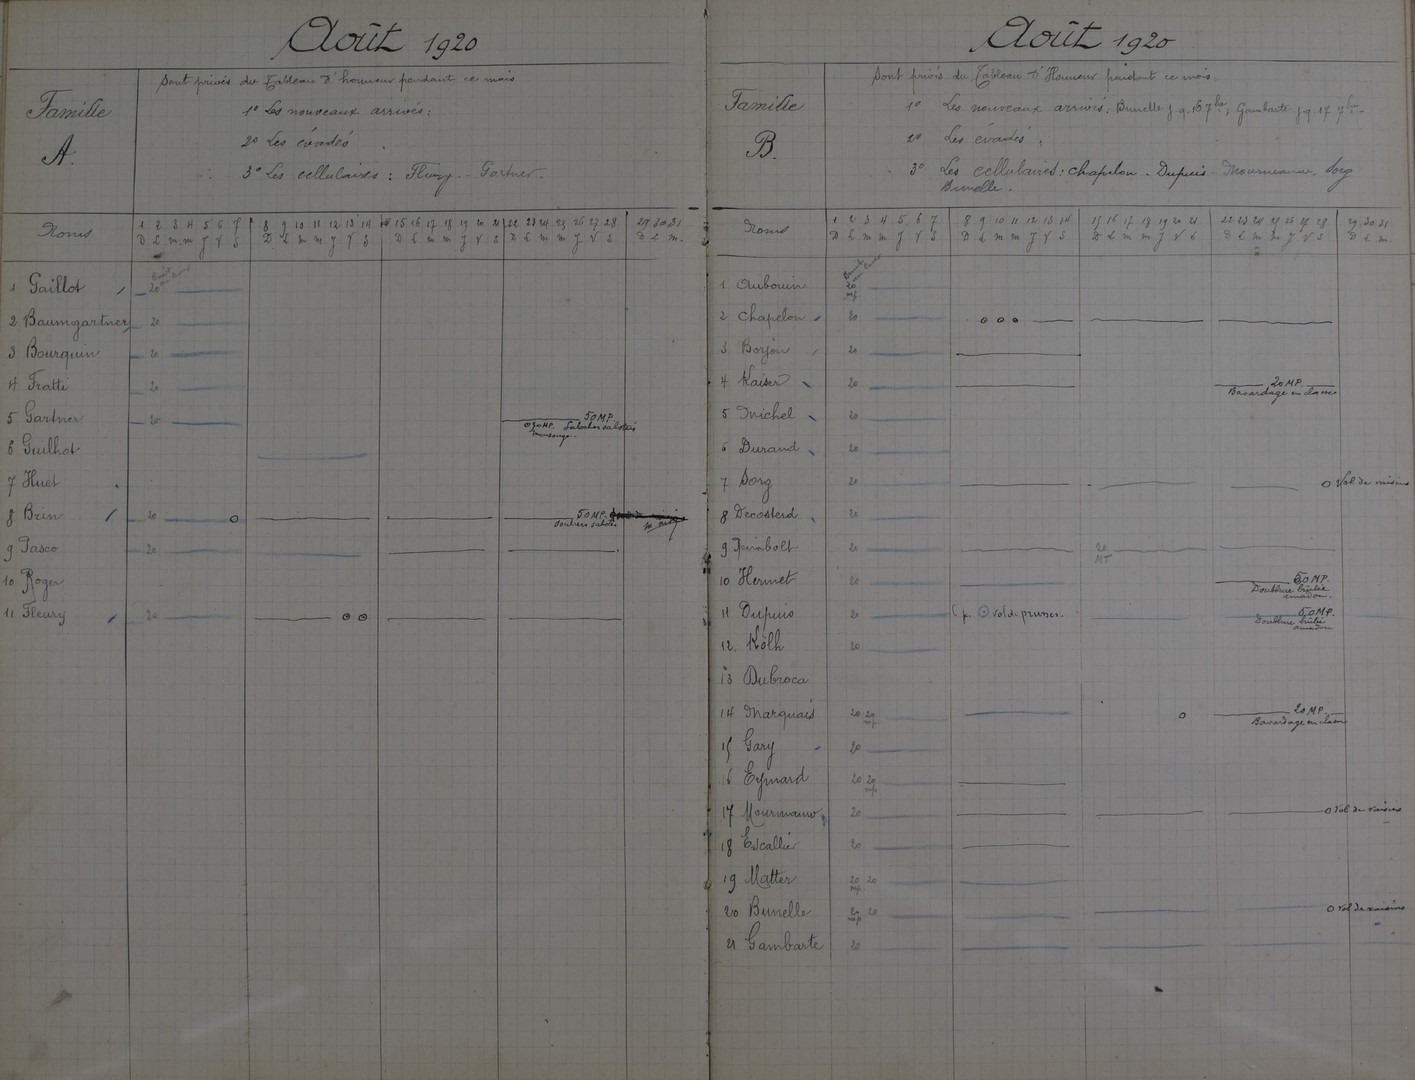 Août 1920
Famille
A.
Sont privés du Tableau d'honneur pendant ce mois
1º Les nouveaux arrivés :
2º Les évadés
3º Les cellulaires : Fleury - Gartner.
Noms
1 2 3 4 5 6 7 8 9 10 11 12 13 14 15 16 17 18 19 20 21 22 23 24 25 26 27 28 29 30 31
D L m m J V S D L m m J V S D L m m J V S D L m m J V S D L m.
1 Gaillot 20
2 Baumgartner 20
3 Bourquin 20
4 Fratti 20
5 Gartner 20 50 MP.
6 Guilhot
7 Huet
8 Brin 20 50 MP.
9 Pasco 20
10 Roger
11 Fleury 20
Août 1920
Famille
B.
Sont privés du Tableau d'Honneur pendant ce mois.
1º Les nouveaux arrivés : Bunelle Gambarte
2º Les évadés .
3º Les cellulaires : Chapelon - Dupuis - Mourmaux. Sorg
Bunelle.
Noms
1 2 3 4 5 6 7 8 9 10 11 12 13 14 15 16 17 18 19 20 21 22 23 24 25 26 27 28 29 30 31
D L m m J V S D L m m J V S D L m m J V S D L m m J V S D L m.
1 Aubouin 20 mp
2 Chapelon 20
3 Borjon 20
4 Kaiser 20 20 MP.
Bavardage en classe
5 Michel 20
6 Durand 20
7 Sorg 20 Vol de raisins
8 Decosterd 20
9 Reimbolt 20 20
10 Hermet 20 50 MP.
Doublure brûlée
amadou.
11 Dupuis 20 vol de prunes. 50 MP.
Doublure brûlée
amadou
12. Kölh 20
13 Dubroca
14 Marquais 20 20 mp 20 MP.
Bavardage en classe
15 Gary 20
16 Eymard 20 20 mp
17 Mourmaux 20 Vol de raisins
18 Escallier 20
19 Matter 20 mp 20
20 Bunelle 20 mp 20 Vol de raisins
21 Gambarte 20